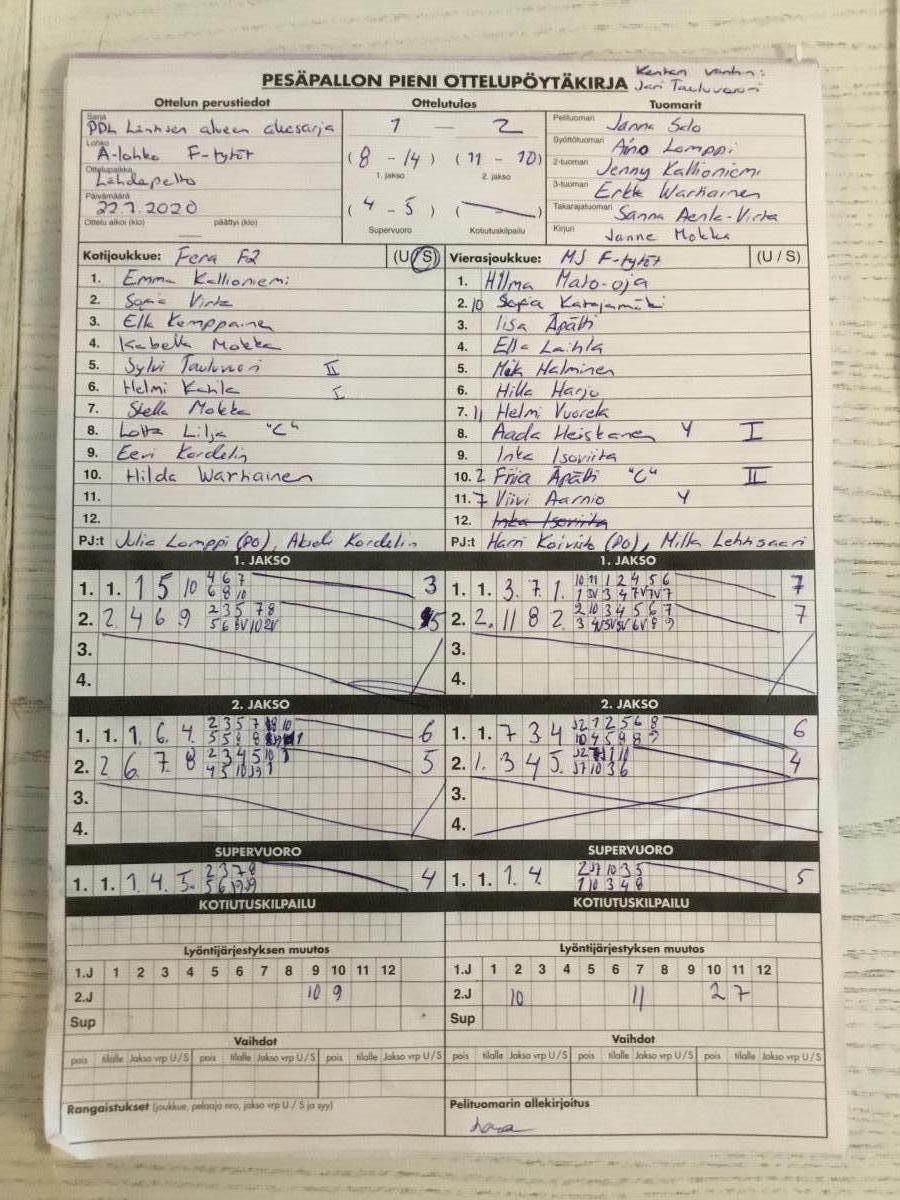 PESÄPALLON PIENI OTTELUPÖYTÄKIRJA
Kentän vanhin:
Jari Tauluvuori
Ottelun perustiedot
Sarja
PDL Läntisen alueen aluesarja
Lohko
A-lohko F-tytöt
Ottelupaikka
Lähdepelto
Päivämäärä
22.7.2020
Ottelu alkoi (klo) päättyi (klo)
Ottelutulos
1 — 2
(8 - 14) (11 - 10)
1. jakso 2. jakso
(4 - 5) ( )
Supervuoro Kotiutuskilpailu
Tuomarit
Pelituomari Janna Salo
Syöttötuomari Aino Lamppi
2-tuomari Jenny Kallioniemi
3-tuomari Erkki Warhainen
Takarajatuomari Sanna Aerila-Virta
Kirjuri Janne Mokka
Kotijoukkue: Fera F2 (U/S)
1. Emma Kallioniemi
2. Sofia Virta
3. Ella Kemppainen
4. Isabella Mokka
5. Sylvi Tauluvuori II
6. Helmi Kahla I
7. Stella Mokka
8. Lotta Lilja "C"
9. Eevi Kordelin
10. Hilda Warhainen
11.
12.
PJ:t Julia Lamppi (PO), Kordelin
Vierasjoukkue: MJ F-tytöt (U / S)
1. Hilma Mato-oja
2. 10 Sofia Katajamäki
3. Iisa Äpätti
4. Ella Laihla
5. Halminen
6. Hilla Harju
7. 11 Helmi Vuorela
8. Aada Heiskanen Y I
9. Inka Isoviita
10. 2 Friia Äpätti "C" II
11. 7 Viivi Aarnio Y
12. Inka Isoviita
PJ:t Harri Koivisto (PO), Milla Lehtisaari
1. JAKSO
1. 1. 1 5 10 4 6 7 3
6 8 10
2. 2 4 6 9 2 3 5 7 8 5
3.
4.
1. JAKSO
1. 1. 3. 7. 1. 10 11 1 2 4 5 6 7
2. 2. 11 8 2. 2 10 3 4 5 6 7 7
3.
4.
2. JAKSO
1. 1. 1. 6. 4. 2 3 5 7 6
2. 2 6. 7 8 2 3 4 5 10 5
3.
4.
2. JAKSO
1. 1. 7 3 4 6
2. 1. 3 4 5. 4
3.
4.
SUPERVUORO
1. 1. 1. 4. 5. 2 3 7 8 4
SUPERVUORO
1. 1. 1. 4. 5
KOTIUTUSKILPAILU
KOTIUTUSKILPAILU
Lyöntijärjestyksen muutos
1.J 1 2 3 4 5 6 7 8 9 10 11 12
2.J 10 9
Sup
Lyöntijärjestyksen muutos
1.J 1 2 3 4 5 6 7 8 9 10 11 12
2.J 10 11 2 7
Sup
Vaihdot
pois tilalle Jakso vrp U/S pois tilalle Jakso vrp U/S pois tilalle Jakso vrp U/S
Vaihdot
pois tilalle Jakso vrp U/S pois tilalle Jakso vrp U/S pois tilalle Jakso vrp U/S
Rangaistukset (joukkue, pelaaja nro, jakso vrp U / S ja syy)
Pelituomarin allekirjoitus